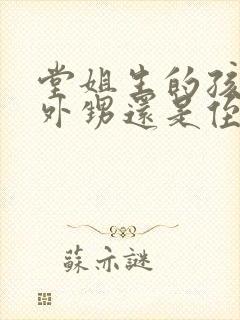 堂姐生的孩
外甥還是侄
蘇亦謎